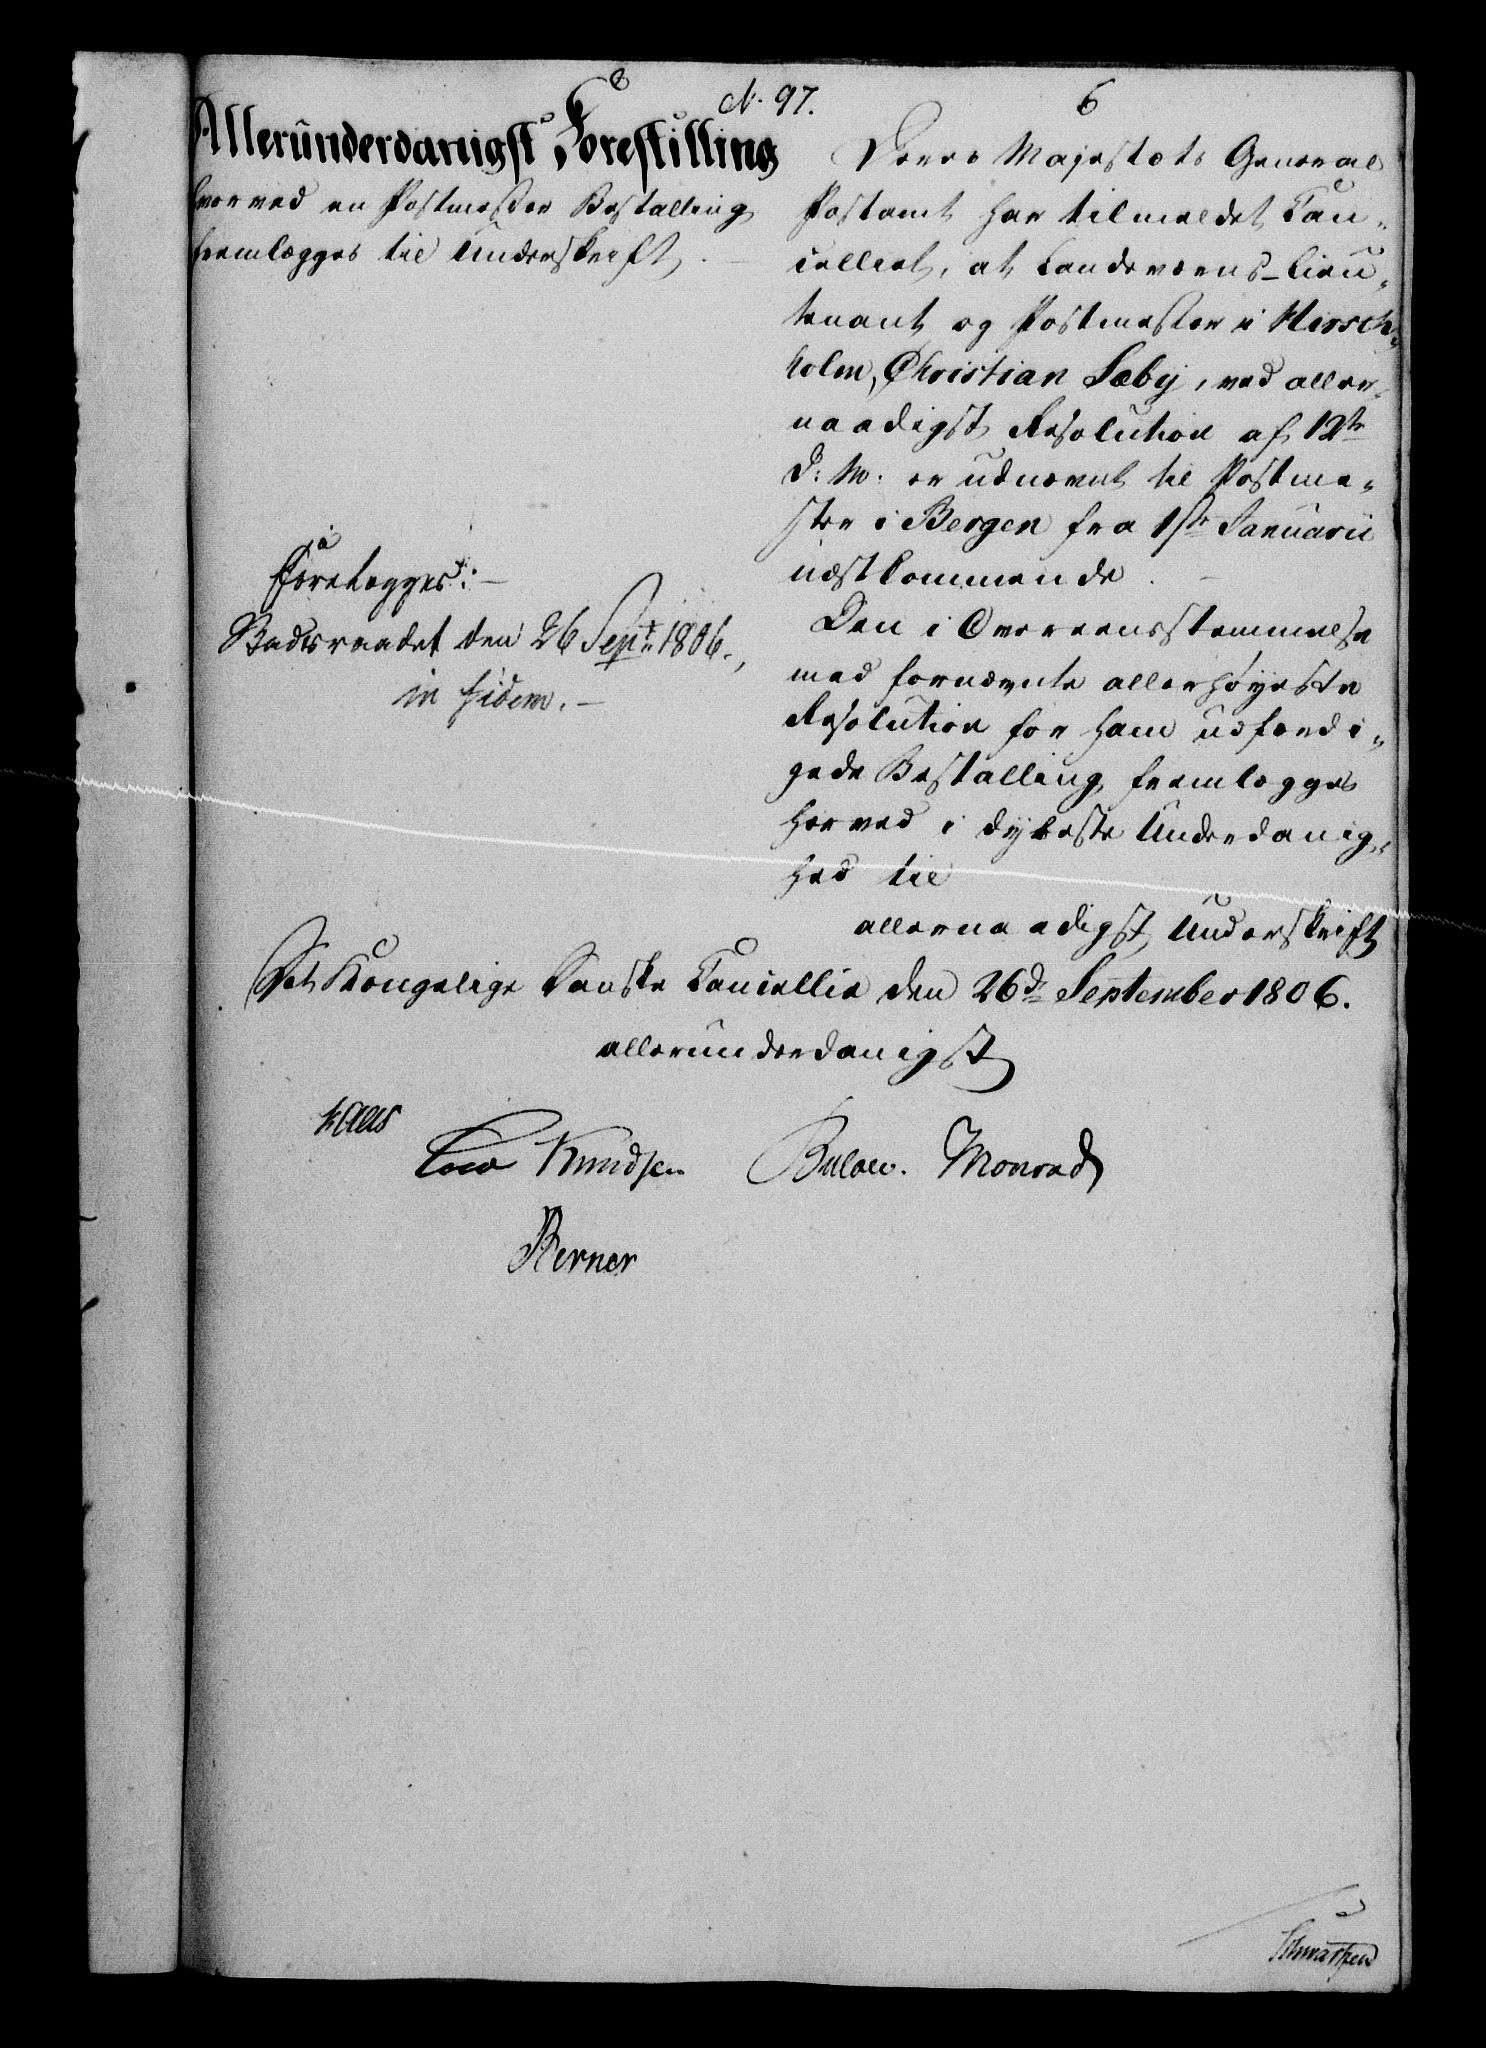 N. 97.
6
Allerunderdanigst Forestilling
hvorved en Postmester Bestalling
fremlægges til Underskrift.
Foretagges:
Stadsraadet den 26 Sept. 1806.,
in fidem.
Deres Majestæts General
Postamt har tilmeldet Can-
celliet, at Landeværns-Lieu-
tenant og Postmester i Hirsch-
holm, Christian Sæby, ved aller-
naadigst Resolution af 12te
d: M: er udnævnt til Postme-
ster i Bergen fra 1ste Januarii
næstkommende.
Den i Overeensstemmelse
med fornævnte allerhøyeste
Resolution for ham udfærdi-
gede Bestalling fremlægges
herved i dybeste Underdanig-
hed til
allernaadigst Underskrift
Det Kongelige Danske Cancellie den 26de September 1806.
allerunderdanigst
Kaas
Cold Knudsen Bülow. Monrad
Berner